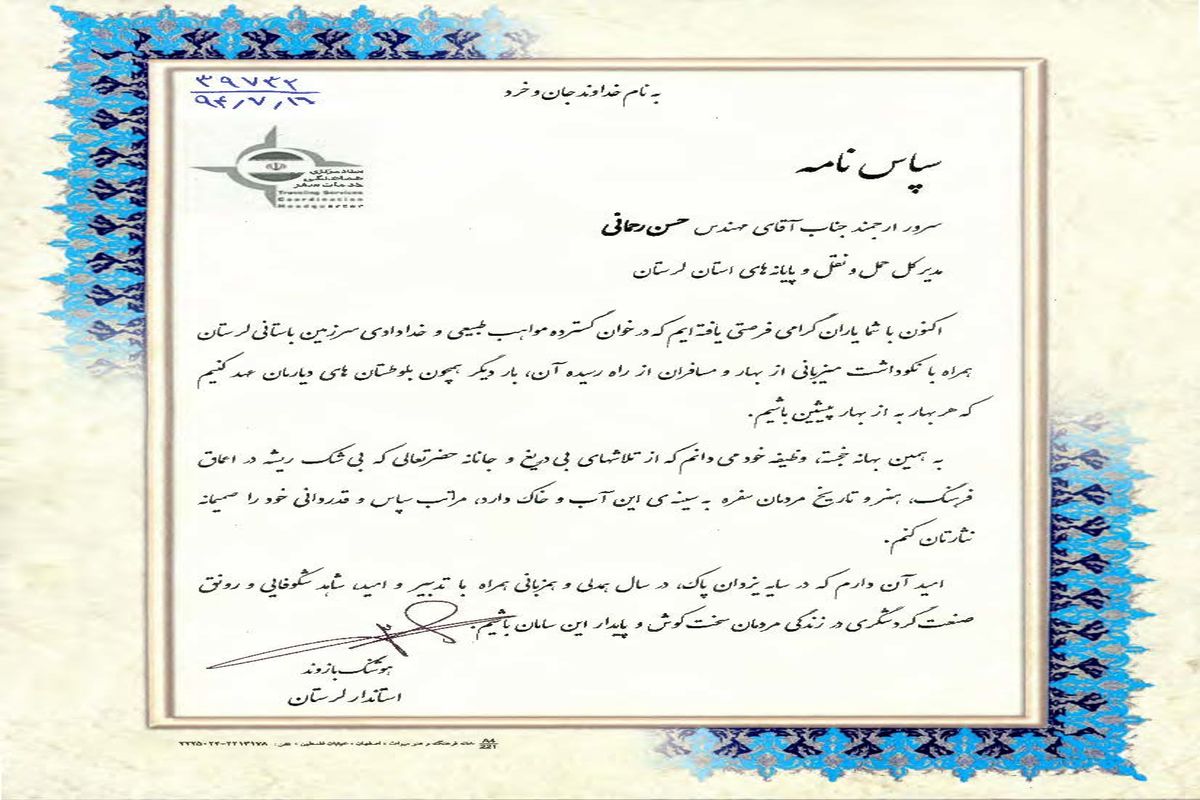 به نام خداوند جان و خرد
۳۹۷۳۲
۹۴/۷/۱۶
ستاد مرکزی
هماهنگی
خدمات سفر
Traveling Services
Coordination
Headquarter
سپاس نامه
سرور ارجمند جناب آقای مهندس حسن رحمانی
مدیرکل حمل و نقل و پایانه های استان لرستان
اکنون با شما یاران گرامی فرصتی یافته ایم که در خوان گسترده مواهب طبیعی و خدادادی سرزمین باستانی لرستان
همراه با نکوداشت میزبانی از بهار و مسافران از راه رسیده آن، بار دیگر همچون بلوطستان های دیارمان عهد کنیم
که هر بهار به از بهار پیشین باشیم.
به همین بهانه خجسته، وظیفه خود می دانم که از تلاشهای بی دریغ و جانانه حضرتعالی که بی شک ریشه در اعماق
فرهنگ، هنر و تاریخ مردمان سفره به سینه ی این آب و خاک دارد، مراتب سپاس و قدردانی خود را صمیمانه
نثارتان کنم.
امید آن دارم که در سایه یزدان پاک، در سال همدلی و همزبانی همراه با تدبیر و امید، شاهد شکوفایی و رونق
صنعت گردشگری در زندگی مردمان سخت کوش و پایدار این سامان باشیم.
هوشنگ بازوند
استاندار لرستان
A4
221
خانه فرهنگ و هنر میراث - اصفهان - خیابان فلسطین - تلفن: ۲۲۱۳۱۷۸-۲۲۲۵۰۲۴